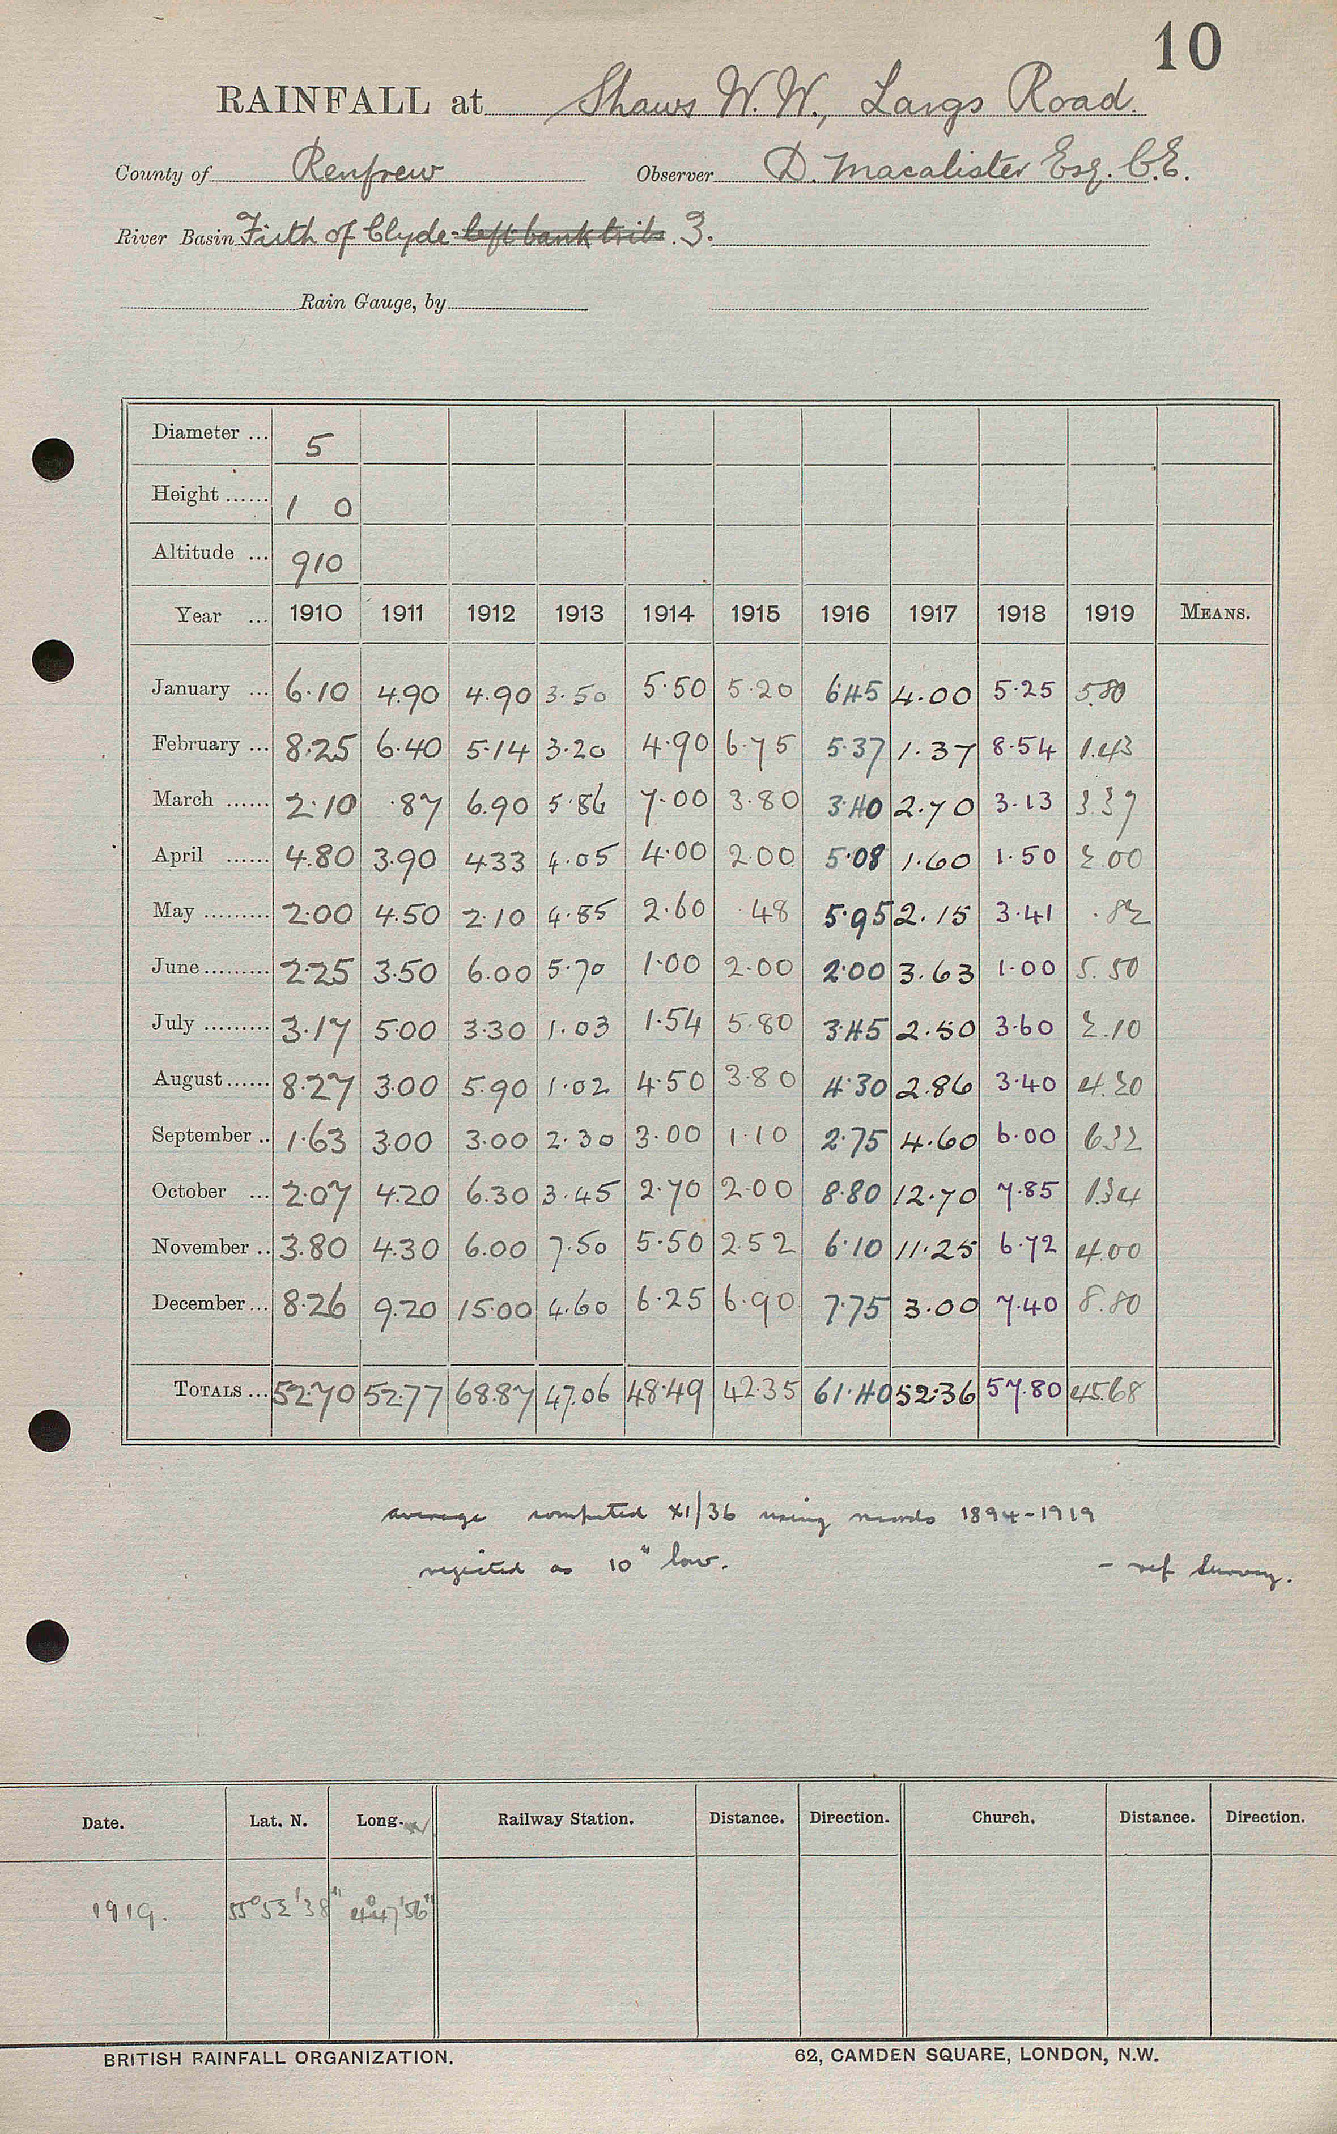 10
RAINFALL at Shaws W.W., Largs Road.
County of Renfrew Observer D. Macalister Esq. C.E.
River Basin Firth of Clyde - left bank tribs. 3.
Rain Gauge, by
Diameter ... 5
Height ...... 1 0
Altitude ... 910
Year ... 1910 1911 1912 1913 1914 1915 1916 1917 1918 1919 MEANS.
January ... 6.10 4.90 4.90 3.50 5.50 5.20 6.45 4.00 5.25 5.80
February ... 8.25 6.40 5.14 3.20 4.90 6.75 5.37 1.37 8.54 1.43
March ...... 2.10 .87 6.90 5.86 7.00 3.80 3.40 2.70 3.13 3.37
April ...... 4.80 3.90 4.33 4.05 4.00 2.00 5.08 1.60 1.50 2.00
May ......... 2.00 4.50 2.10 4.85 2.60 .48 5.95 2.15 3.41 .82
June ......... 2.25 3.50 6.00 5.70 1.00 2.00 2.00 3.63 1.00 5.50
July ......... 3.17 5.00 3.30 1.03 1.54 5.80 3.45 2.50 3.60 2.10
August ...... 8.27 3.00 5.90 1.02 4.50 3.80 4.30 2.86 3.40 4.20
September .. 1.63 3.00 3.00 2.30 3.00 1.10 2.75 4.60 6.00 6.32
October ... 2.07 4.20 6.30 3.45 2.70 2.00 8.80 12.70 7.85 1.34
November .. 3.80 4.30 6.00 7.50 5.50 2.52 6.10 11.25 6.72 4.00
December ... 8.26 9.20 15.00 4.60 6.25 6.90 7.75 3.00 7.40 8.80
TOTALS ... 52.70 52.77 68.87 47.06 48.49 42.35 61.40 52.36 57.80 45.68
average computed XI/36 using records 1894-1919
rejected as 10" low. - ref Survey.
Date. Lat. N. Long. W Railway Station. Distance. Direction. Church. Distance. Direction.
1919. 55° 52' 38" 4° 47' 56"
BRITISH RAINFALL ORGANIZATION. 62, CAMDEN SQUARE, LONDON, N.W.